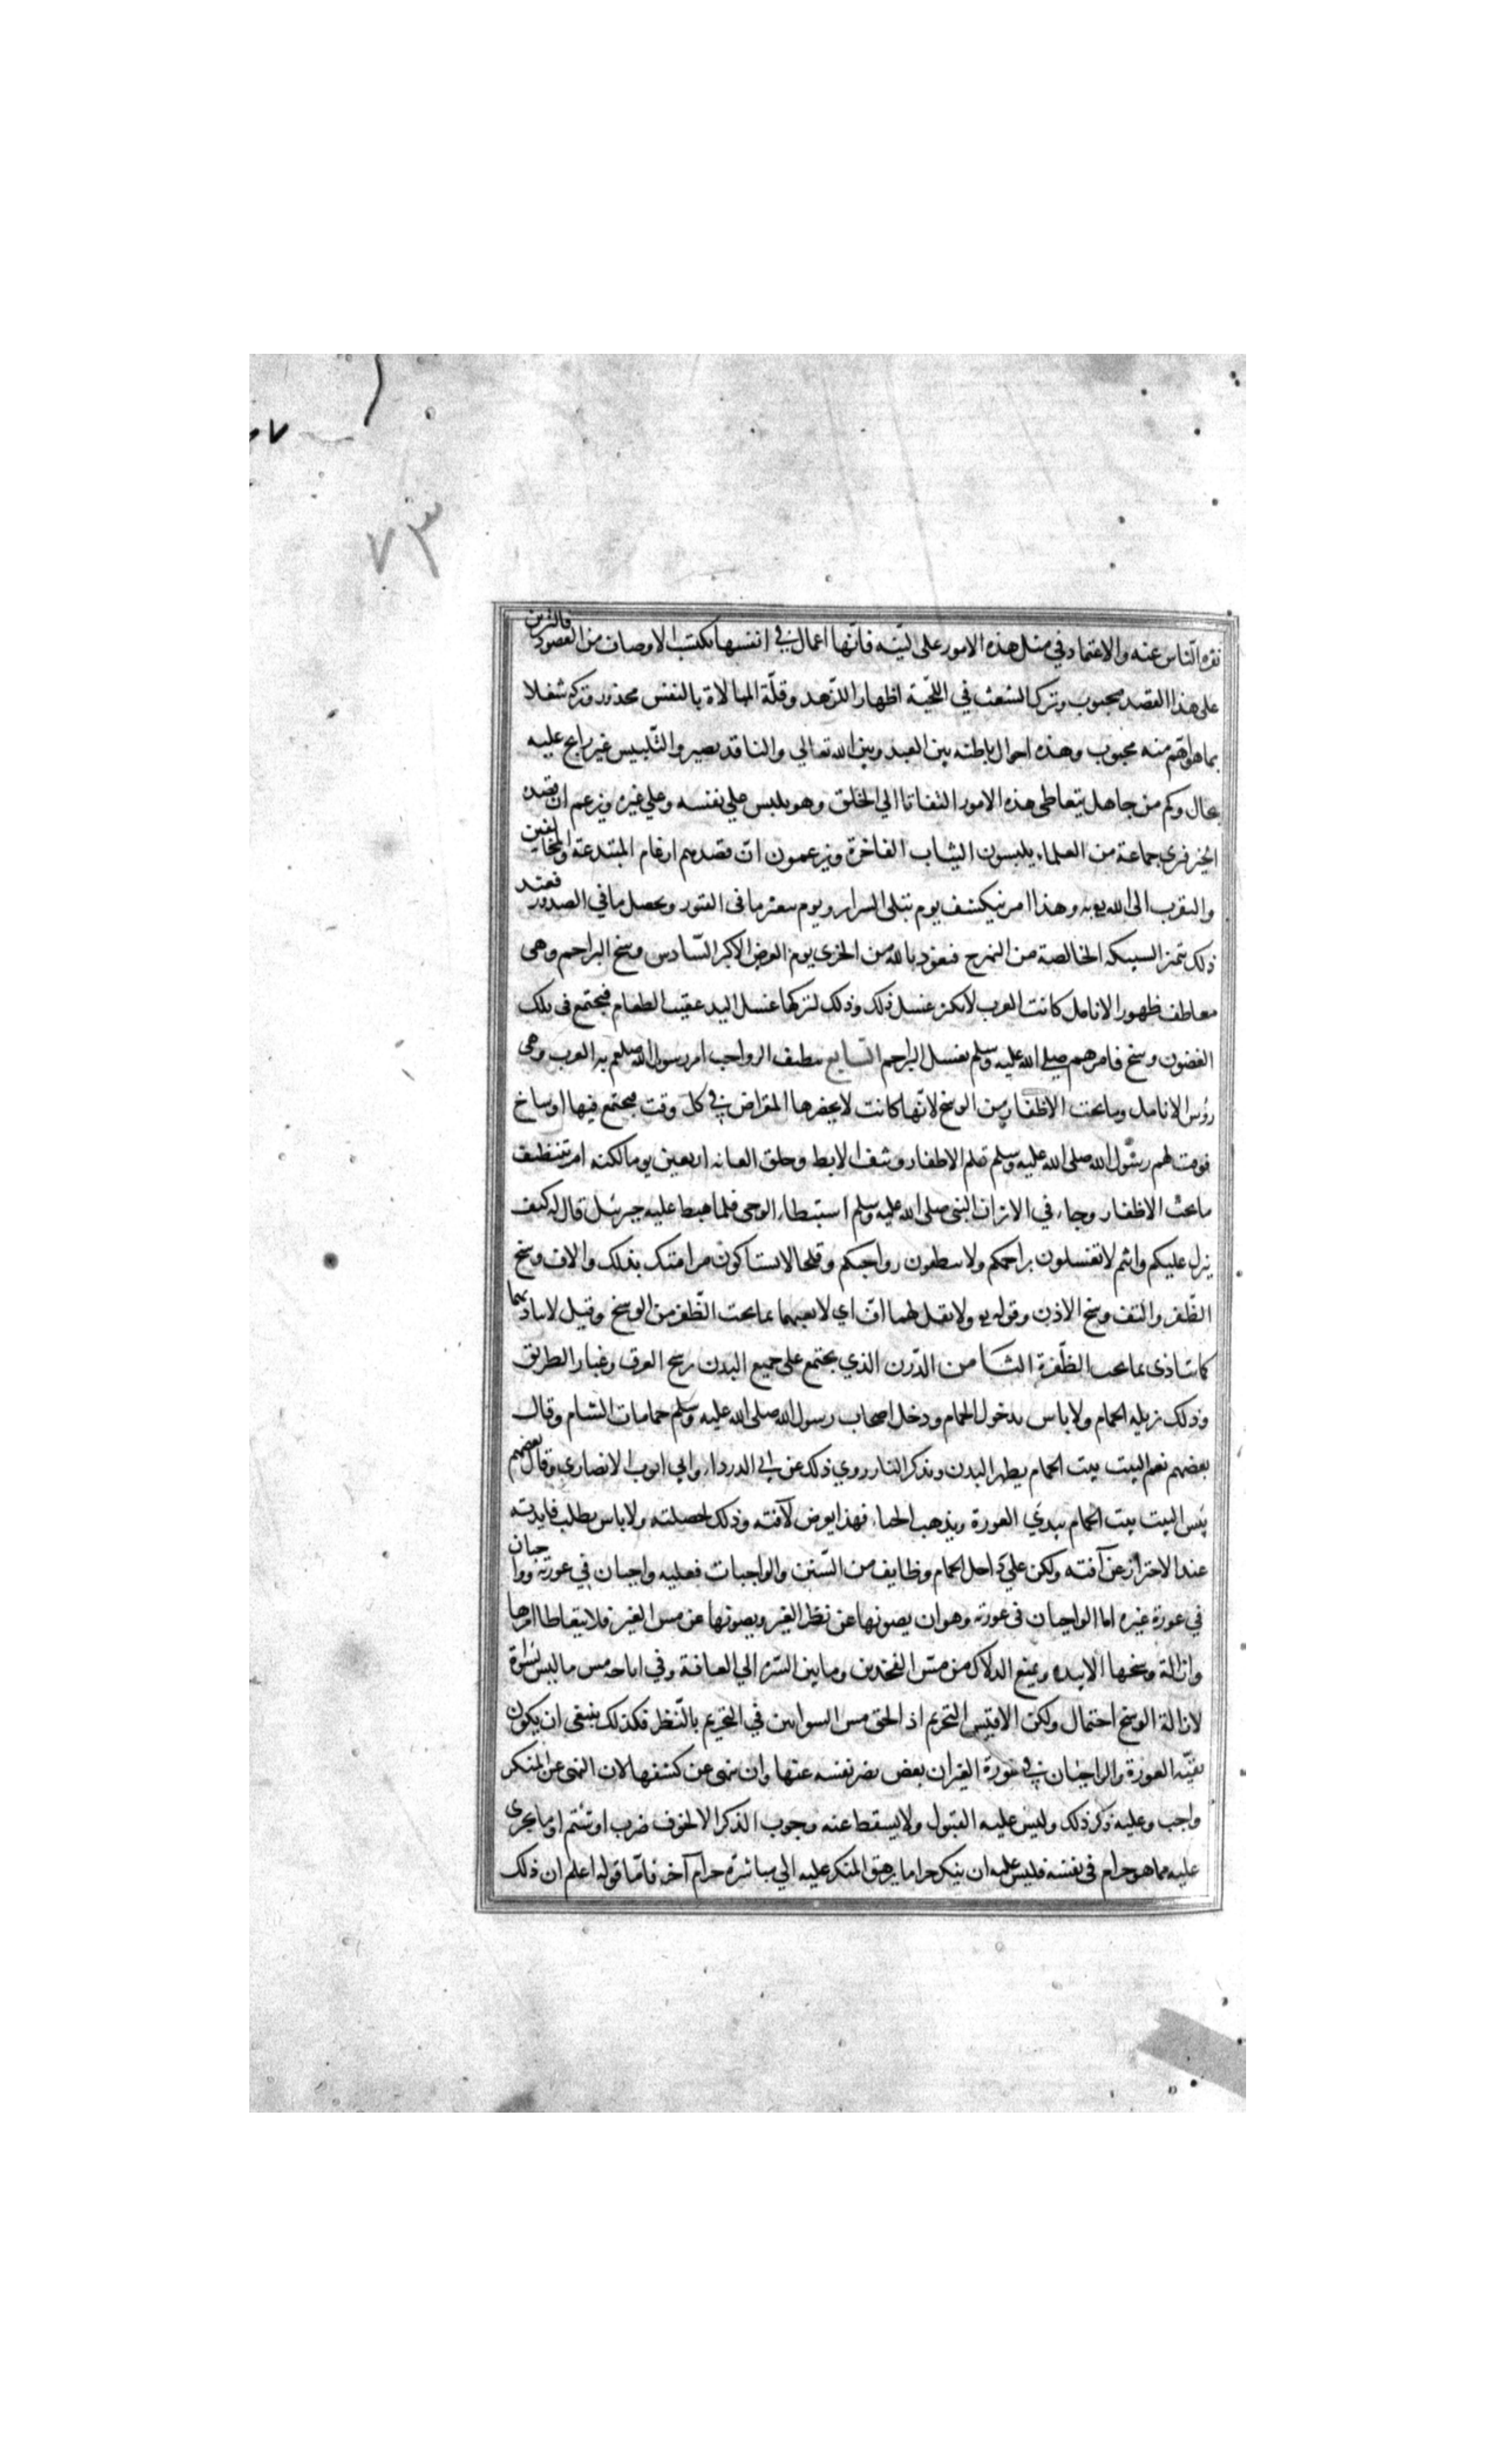 ٧٣
نفرة الناس عنه والاعتماد في مثل هذه الامور على النية فانها اعمال في انفسها تكتسب الاوصاف من القصود فالتزين
على هذا القصد محبوب وترك الشعث في اللحية اظهارا للزهد وقلة المبالاة بالنفس محذور وتركه شغلا
بما هو اهم منه محبوب وهذه احوال باطنه بين العبد وبين الله تعالي والناقد بصير والتلبيس غير رايج عليه
بحال وكم من جاهل يتعاطى هذه الامور التفاتا الي الخلق وهو يلبس علي نفسه وعلي غيره ويزعم ان قصده
الخير فترى جماعة من العلماء يلبسون الثياب الفاخرة ويزعمون ان قصدهم ارغام المبتدعة والمخالفين
والتقرب الى الله به وهذا امر ينكشف يوم تبلى السراير ويوم يبعثر ما فى القبور ويحصل ما في الصدور فعند
ذلك تتميز السبيكه الخالصة من البهرج فنعوذ بالله من الخزى يوم العرض الاكبر السادس وسخ البراجم وهى
معاطف ظهور الانامل كانت العرب لا تكثر غسل ذلك وذلك لتركها غسل اليد عقيب الطعام فيجتمع فى تلك
الغضون وسخ فامرهم صلى الله عليه وسلم بغسل البراجم السابع تنظيف الرواجب امر رسول الله صلعم به العرب وهى
رؤس الانامل وما تحت الاظفار من الوسخ لانها كانت لا يحضرها المقراض في كل وقت فيجتمع فيها اوساخ
فوقت لهم رسول الله صلى الله عليه وسلم قلم الاظفار ونتف الابط وحلق العانه اربعين يوما لكنه امر بتنظيف
ما تحت الاظفار وجاء في الاثر ان النبى صلى الله عليه وسلم استبطاء الوحى فلما هبط عليه جبرئيل قال له كيف
ينزل عليكم وانتم لا تغسلون براجمكم ولا تنظفون رواجبكم وقلحا لا تستاكون مر امتك بذلك والاف وسخ
الظفر والتف وسخ الاذن وقوله ولا تقل لهما اف اي لا تعبهما بما تحت الظفر من الوسخ وقيل لا تتاذ بهما
كما تتاذى بما تحت الظفرة الثامن الدرن الذي يجتمع على جميع البدن برشح العرق وغبار الطريق
وذلك يزيله الحمام ولا باس بدخول الحمام ودخل اصحاب رسول الله صلى الله عليه وسلم حمامات الشام وقال
بعضهم نعم البيت بيت الحمام يطهر البدن ويذكر النار روي ذلك عن ابي الدرداء وابي ايوب الانصاري وقال بعضهم
بئس البيت بيت الحمام يبدي العورة ويذهب الحياء فهذا يعرض لآفته وذلك لخصلته ولا باس بطلب فايدته
عند الاحتراز عن آفته ولكن علي داخل الحمام وظايف من السنن والواجبات فعليه واجبان في عورته وواجبان
في عورة غيره اما الواجبان فى عورته وهو ان يصونها عن نظر الغير ويصونها عن مس الغير فلا يتعاطا امرها
وازالة وسخها الا بيده ويمنع الدلاك من مس الفخذين وما بين السرة الي العانة وفي اباحه مس ما ليس بسوأة
لازالة الوسخ احتمال ولكن الاقيس التحريم اذ الحق مس السواتين في التحريم بالنظر فكذلك ينبغي ان يكون
بقية العورة والواجبان في عورة الغير ان يغض بصر نفسه عنها وان ينهى عن كشفها لان النهى عن المنكر
واجب وعليه ذكر ذلك وليس عليه القبول ولا يسقط عنه وجوب الذكر الا لخوف ضرب او شتم او ما يجرى
عليه مما هو حرام فى نفسه فليس عليه ان ينكر حراما يرهق المنكر عليه الي مباشرة حرام آخر فاما قوله اعلم ان ذلك